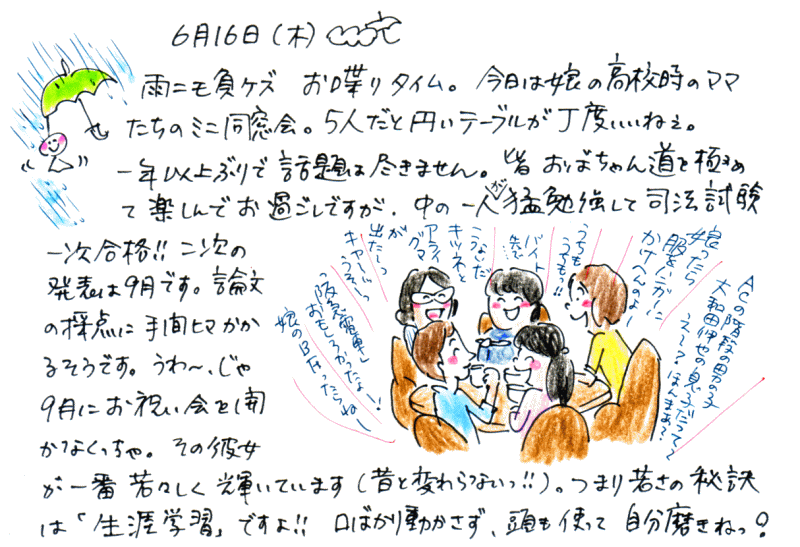 6月16日(木)
雨ニモ負ケズ お喋りタイム。今日は娘の高校時のママ
たちのミニ同窓会。5人だと円いテーブルが丁度いいねぇ。
一年以上ぶりで話題は尽きません。皆おばちゃん道を極め
て楽しんでお過ごしですが、中の一人が猛勉強して司法試験
一次合格!! 二次の
発表は9月です。論文
の採点に手間ヒマがかか
るそうです。うわ〜、じゃ
9月にお祝い会を開
かなくっちゃ。その彼女
が一番若々しく輝いています(昔と変わらないっ!!)。つまり若さの秘訣
は「生涯学習」ですよ!! 口ばかり動かさず、頭も使って自分磨きねっ♀
ACの隣の男の子
大和田伸也の息子だって〜
え〜ほんまぁ?
娘ったら
服をハンガーに
かけへんのよー
うちも
うちも!!
バイト
先に
こないだ
キツネと
アライ
グマ
が
出たーっ
キャーいっ
うそーっ
阪急電車
おもしろかったよー!
娘の日行ったらねし